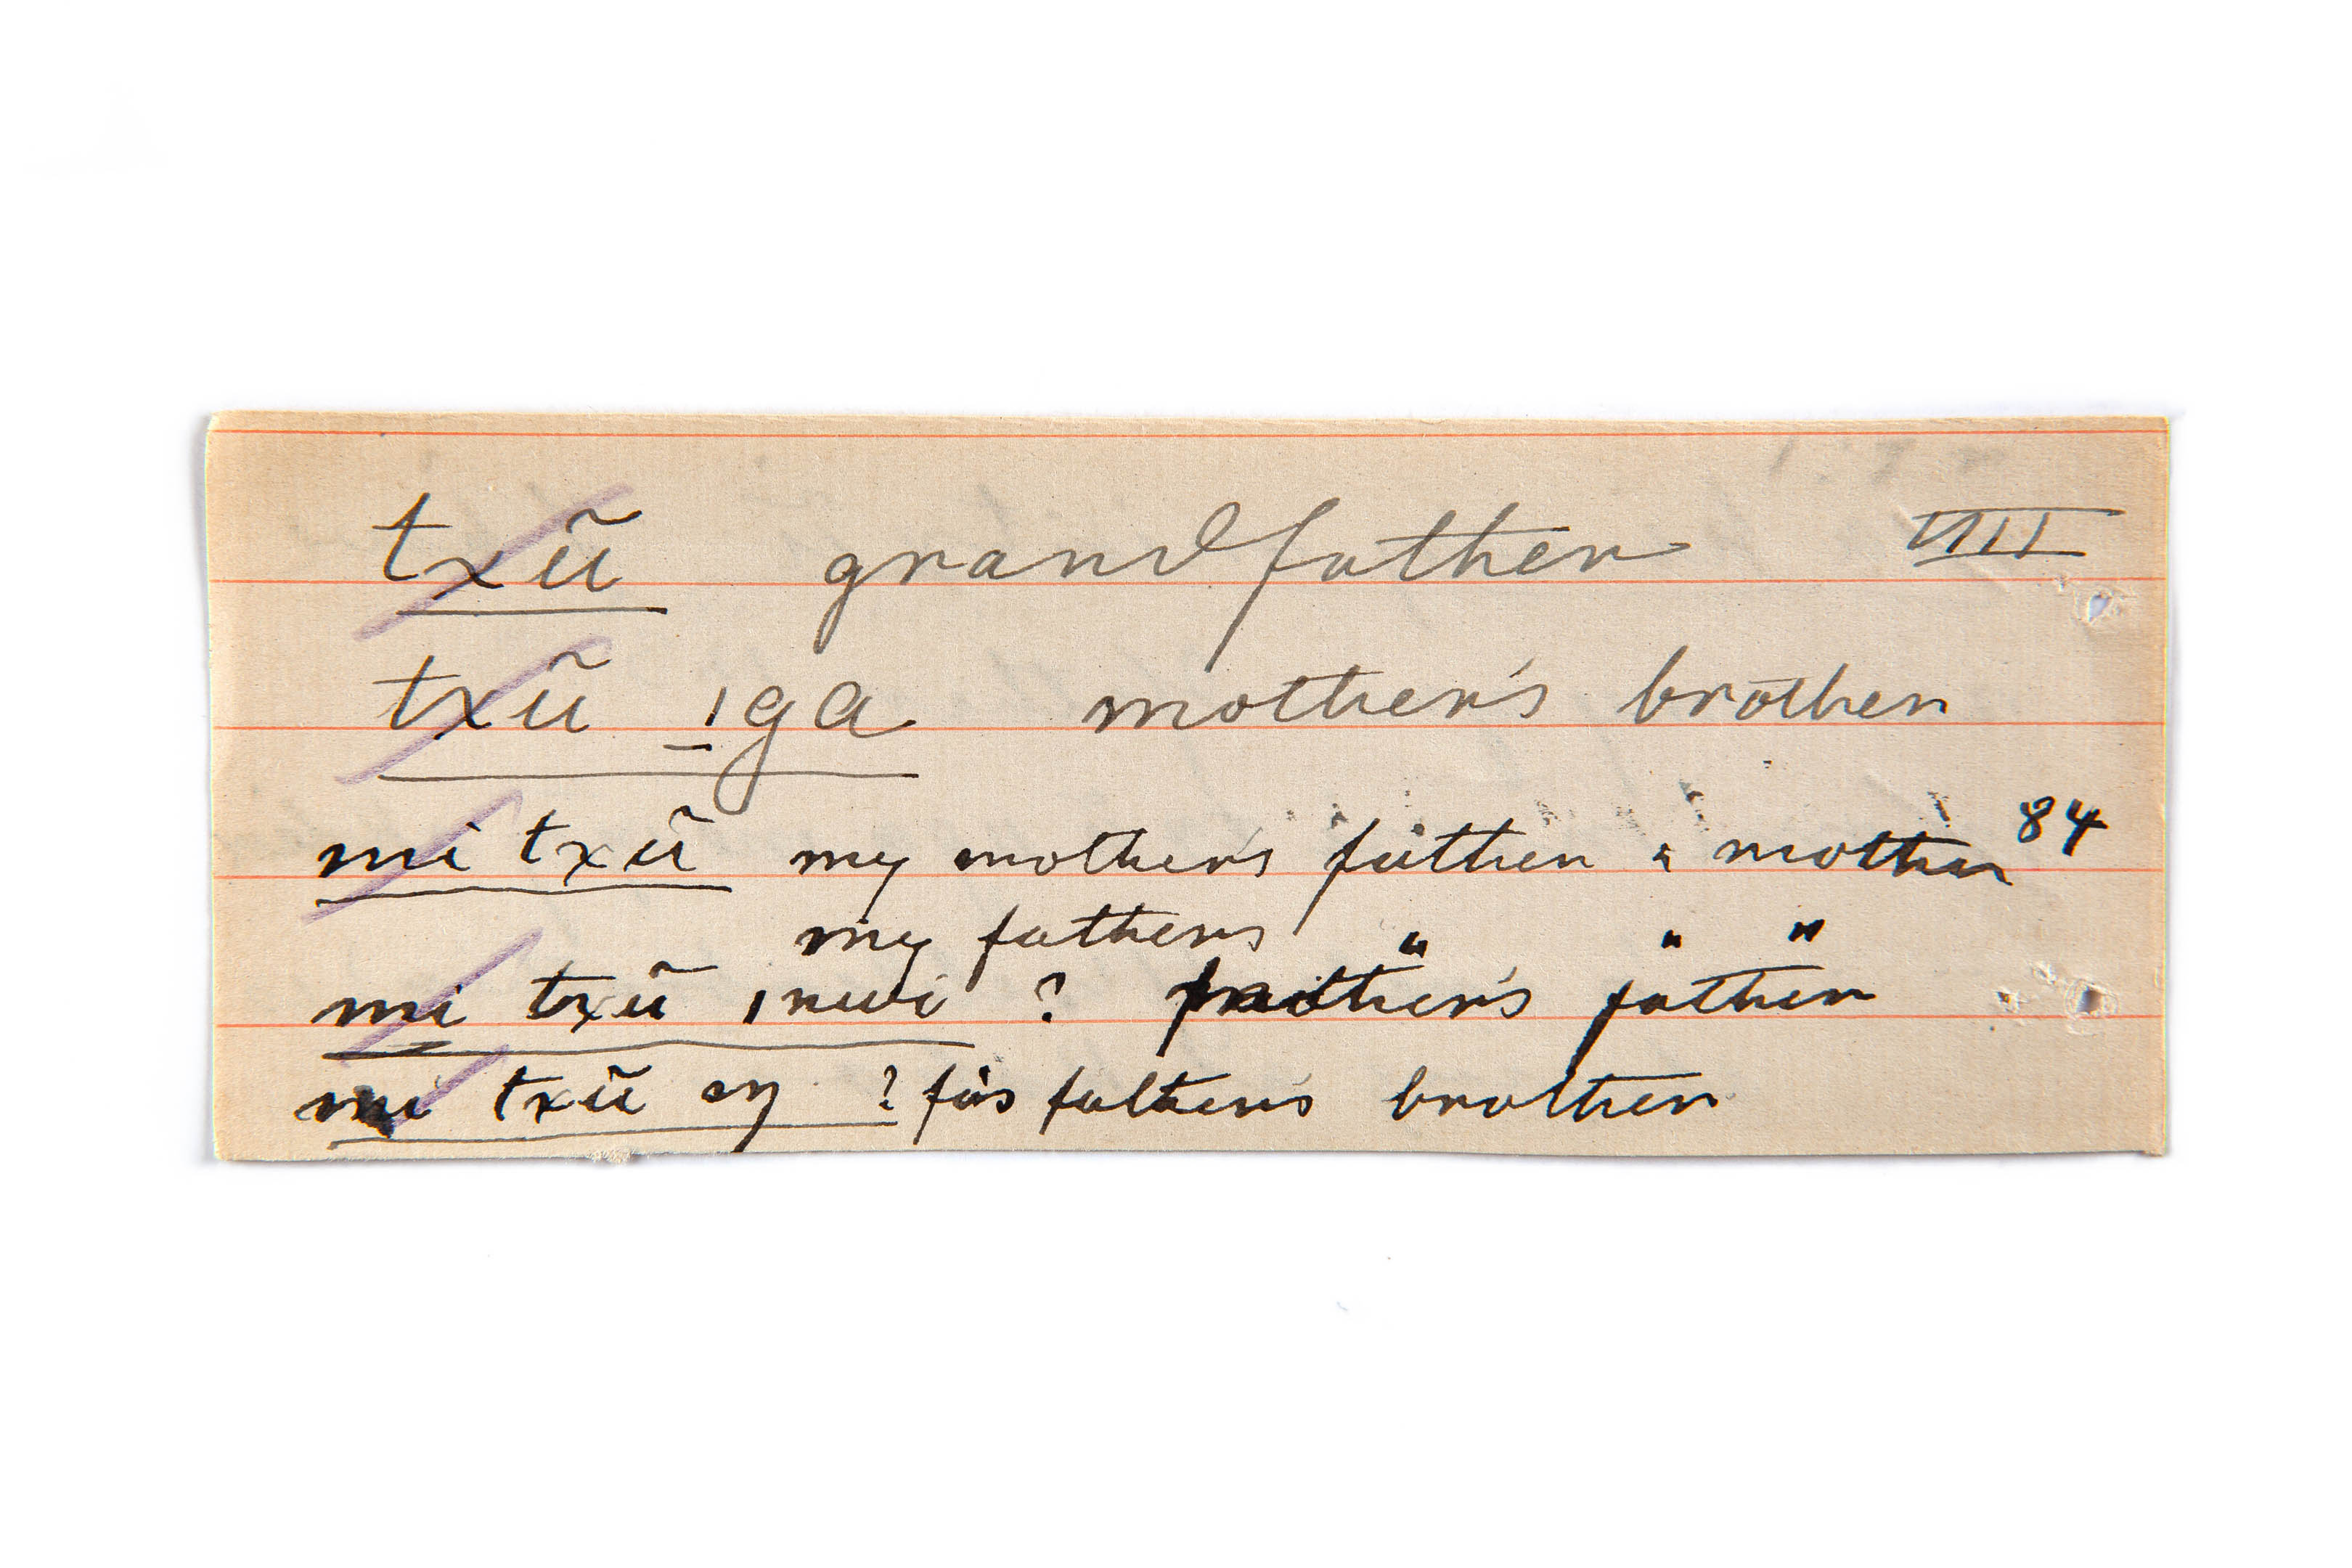 txũ grandfather VIII
txũ ıga mother's brother
mi txũ my mother's father & mother 84
my fathers " " "
mi txũ ? father's father
mi txũ ? fa's father's brother